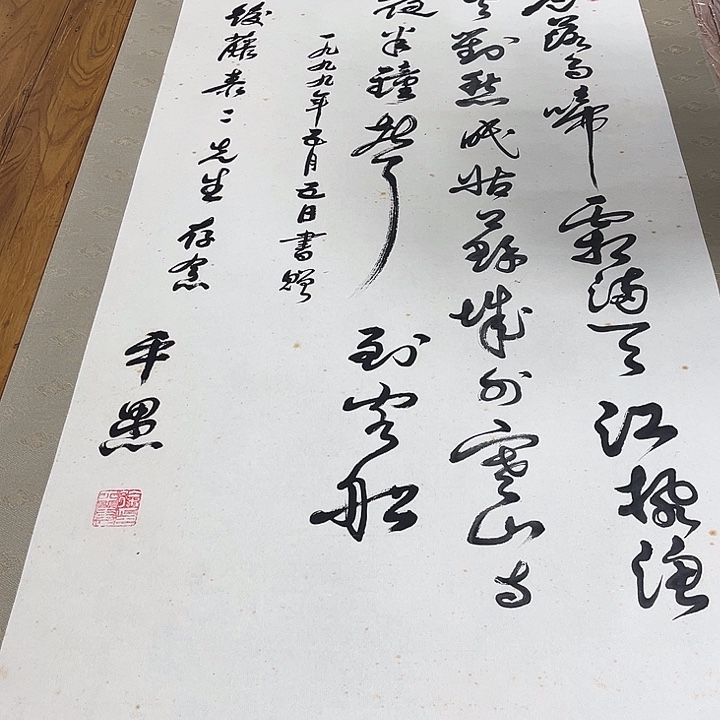 月落烏啼霜滿天江楓漁
火對愁眠姑蘇城外寒山寺
夜半鐘聲到客船
一九九九年五月五日書贈
後藤二先生存念
平愚